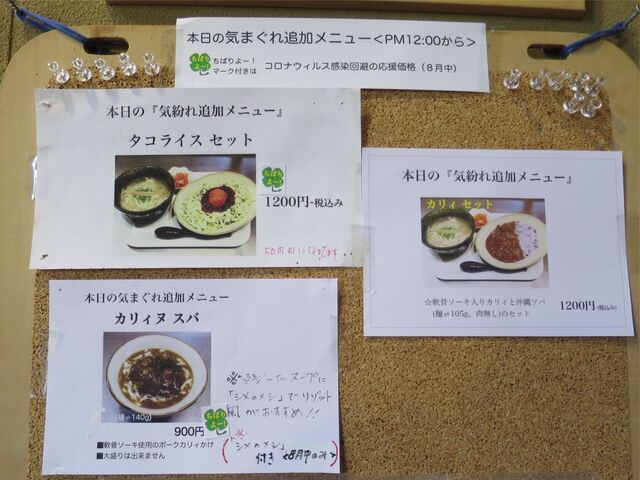 本日の気まぐれ追加メニュー<PM12:00から>
ちばりよー！
マーク付きは コロナウィルス感染回避の応援価格（８月中）
本日の『気紛れ追加メニュー』
タコライス セット
ちばりよー！
1200円-税込み
50円引になってます
本日の『気紛れ追加メニュー』
カリィ セット
☆軟骨ソーキ入りカリィと沖縄ソバ
(麺≓105g、肉無し)のセット
1200円(税込み)
本日の気まぐれ追加メニュー
カリィヌ スバ
(麺≓140g)
900円
ちばりよー！
■軟骨ソーキ使用のポークカリィかけ
■大盛りは出来ません
※残ったスープに
「シメのメシ」でリゾット
風がおすすめ!!
(※「シメのメシ」
付き <8月中のみ>)